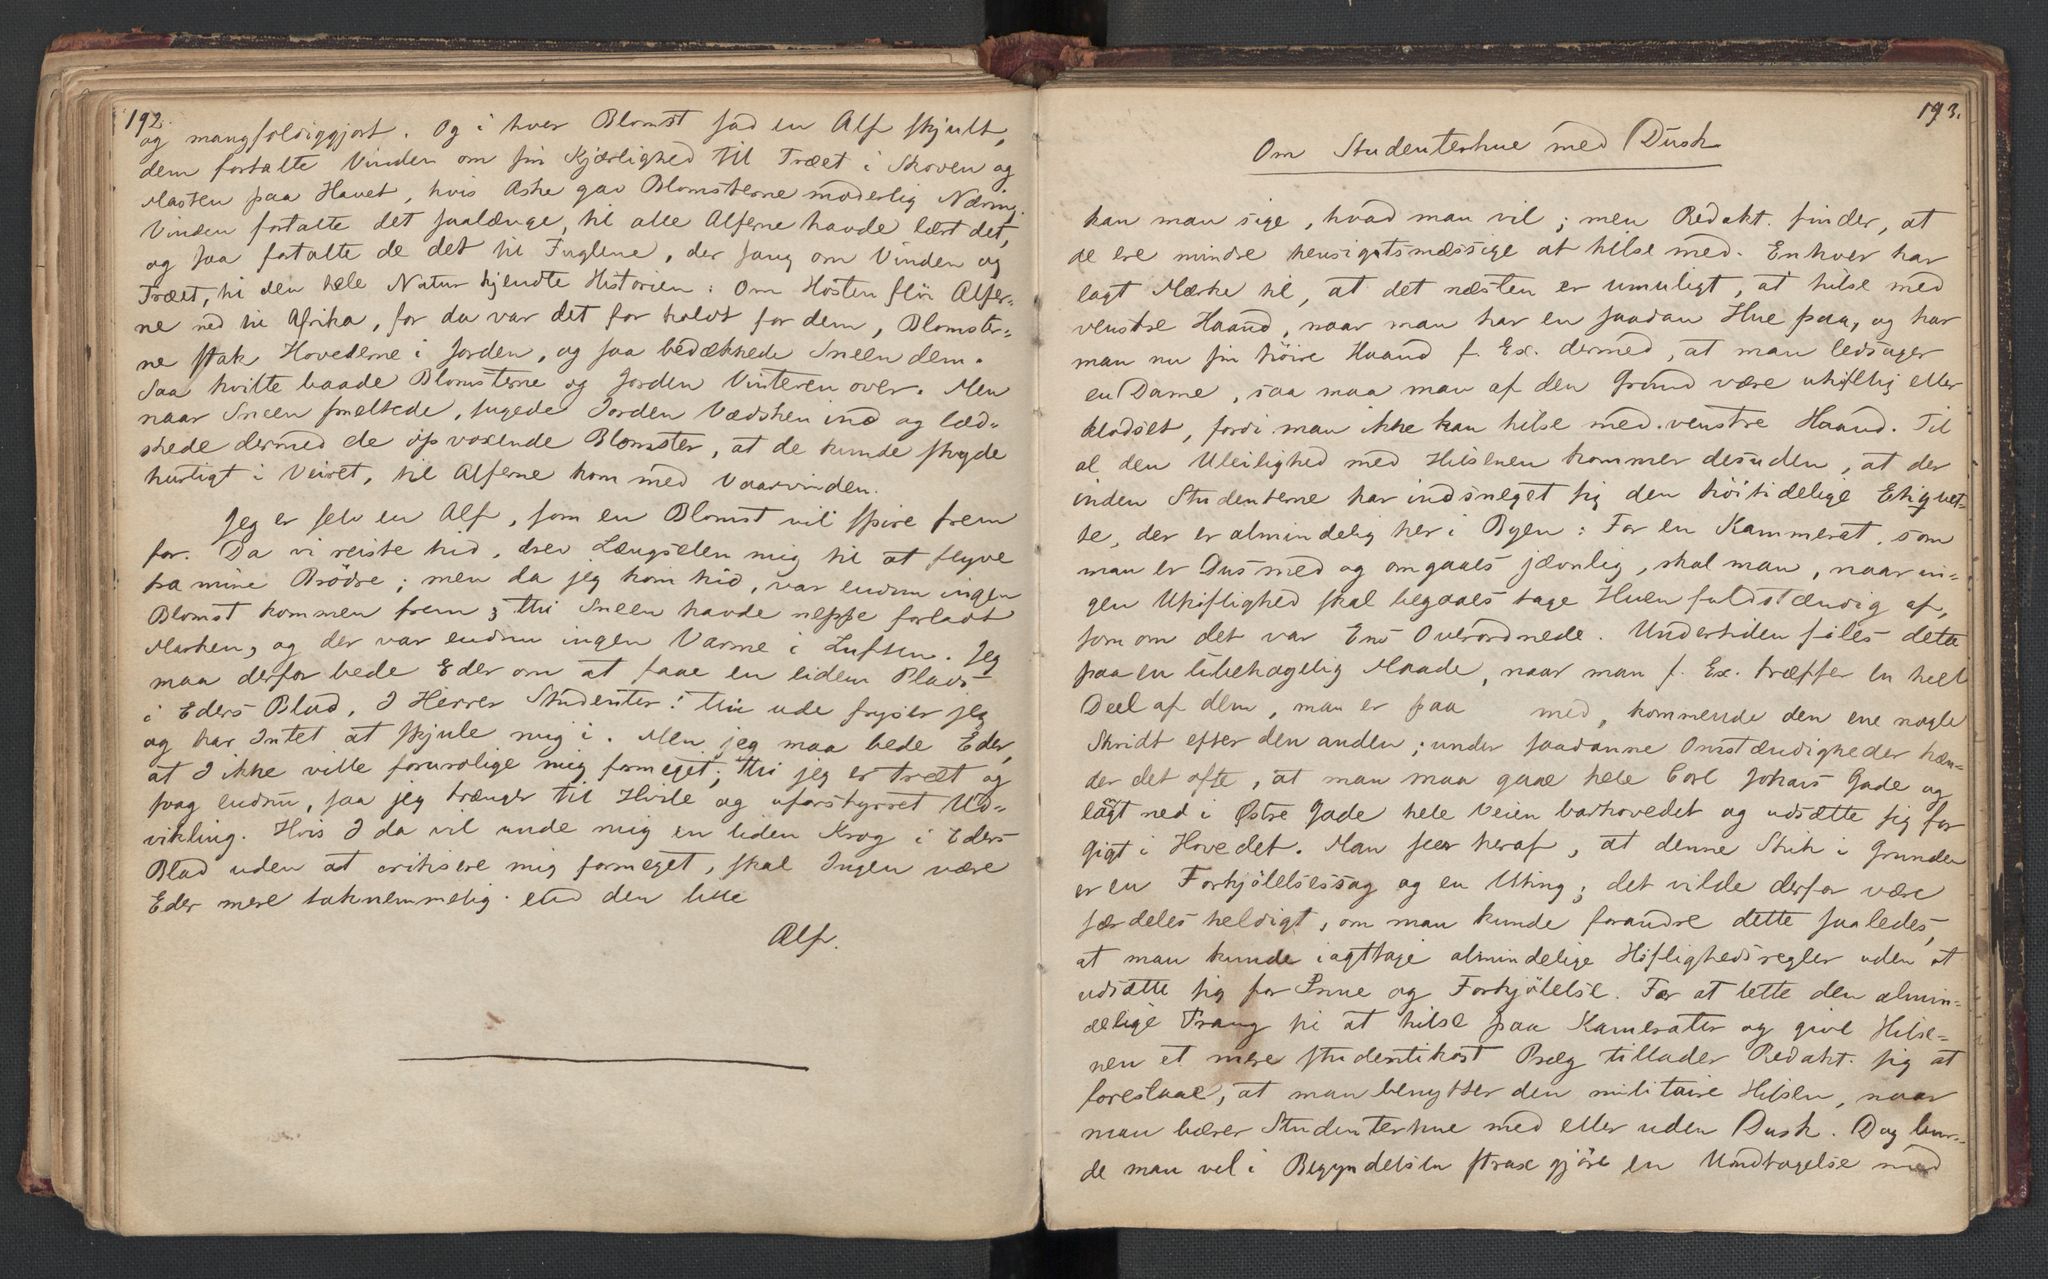 192.
og mangfoldiggjort. Og i hver Blomst sad en Alf skjult,
dem fortalte Vinden om sin Kjærlighed til Træet i Skoven og
Masten paa Havet, hvis Aske gav Blomsterne moderlig Næring.
Vinden fortalte det saalænge, til alle Alferne havde lært det,
og saa fatalte de det til Fuglene, der sang om Vinden og
Træet, til den hele Natur kjendte Historien: Om Høsten flöi Alfer-
ne ned til Afrika, for da var det for koldt for dem, Blomster-
ne stak Hovederne i Jorden, og saa bedækkede Sneen dem.
Saa hvilte baade Blomsterne og Jorden Vinteren over. Men
naar Sneen smeltede, sugede Jorden Vædsken ind og læd-
skede dermed de opvoxende Blomster, at de kunde skyde
hurtigt i Veiret, til Alferne kom med Vaarvinden.
Jeg er selv en Alf, som en Blomst vil spire frem
for. Da vi reiste hid, drev Længselen mig til at flyve
fra mine Brödre; men da jeg kom hid, var endnu ingen
Blomst kommen frem; thi Sneen havde neppe forladt
Marken, og der var endnu ingen Varme i Luften. Jeg
maa derfor bede Eder om at faae en liden Plads
i Eders Blad, I Herrer Studenter! thi ude fryser jeg
og har Intet at skjule mig i. Men jeg maa bede Eder,
at I ikke ville forurolige mig formeget; thi jeg er træt og
svag endnu, saa jeg trænger til Hvile og uforstyrret Ud-
vikling. Hvis I da vil unde mig en liden Krog i Eders
Blad uden at critisere mig formeget, skal Ingen være
Eder mere taknemmelig end den lille
Alf.
193.
Om Studenterhue med Dusk
kan man sige, hvad man vil; men Redakt. finder, at
de ere mindre hensigtsmæssige at hilse med. Enhver har
lagt Mærke til, at det næsten er umuligt, at hilse med
venstre Haand, naar man har en saadan Hue paa, og har
man nu sin höire Haand f. Ex. dermed, at man ledsager
en Dame, saa maa man af den Grund være uhøflig eller
klodset, fordi man ikke kan hilse med venstre Haand. Til
al den Uleilighed med Hilsenen kommer desuden, at der
inden Studenterne har indsneget sig den höitidelige Etiquet-
te, der er almindelig her i Byen: For en Kammerat, som
man er Dus med og omgaaes jævnlig, skal man, naar in-
gen Uhøflighed skal begaaes tage Huen fuldstændig af,
som om det var Ens Overordnede. Undertiden føles dette
paa en ubehagelig Maade, naar man f. Ex. træffer en heel
Deel af dem, man er paa med, kommende den ene nogle
Skridt efter den anden; under saadanne Omstændigheder hæn-
der det ofte, at man maa gaae hele Carl Johans Gade og
lagt ned i Østre Gade hele Veien barhovedet og udsætte sig for
Gigt i Hovedet. Man seer heraf, at denne Skik i Grunden
er en Forkjölelsessag og en Uting; det vilde derfor være
særdeles heldigt, om man kunde forandre dette saaledes,
at man kunde iagttage almindelige Høflighedsregler uden at
udsætte sig for Snue og Forkjölelse. For at lette den almin-
delige Trang til at hilse paa Kamerater og give Hilse-
nen et mere studentikost Præg tillader Redakt. sig at
foreslaae, at man benytter den militaire Hilsen, naar
man bærer Studenterhue med eller uden Dusk. Dog bur-
de man vel i Begyndelsen strax gjöre en Undtagelse med